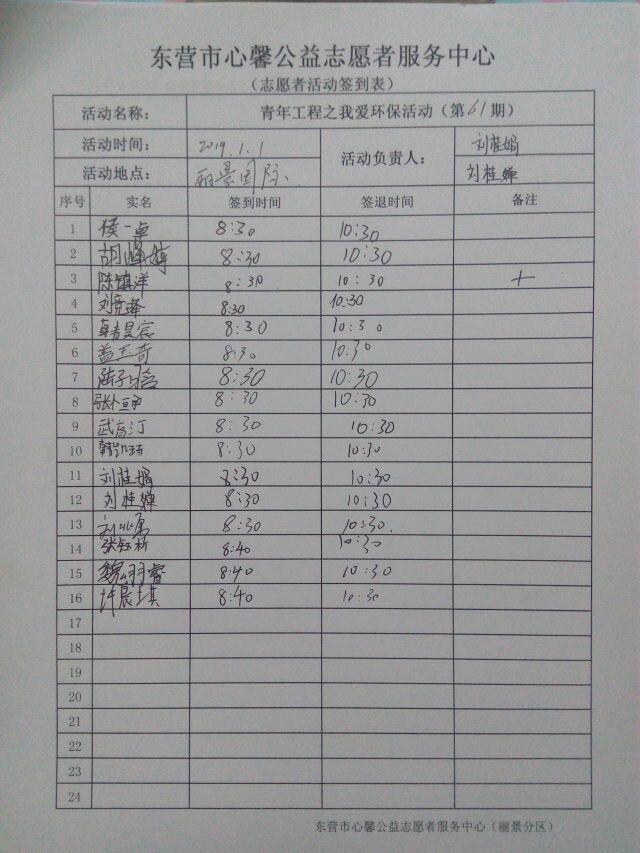 东营市心馨公益志愿者服务中心
（志愿者活动签到表）
活动名称： 青年工程之我爱环保活动（第61期）
活动时间： 2019.1.1 活动负责人： 刘桂娟
活动地点： 丽景国际 刘桂婵
序号 实名 签到时间 签退时间 备注
1 侯一卓 8:30 10:30
2 胡 8:30 10:30
3 陈镇洋 8:30 10:30 +
4 刘 8:30 10:30
5 韩昊宸 8:30 10:30
6 盖玉奇 8:30 10:30
7 陆子晗 8:30 10:30
8 张 8:30 10:30
9 武 汀 8:30 10:30
10 韩凯 8:30 10:30
11 刘桂娟 8:30 10:30
12 刘桂婵 8:30 10:30
13 刘 8:30 10:30
14 张钰新 8:40 10:30
15 魏羽睿 8:40 10:30
16 许晨琪 8:40 10:30
17
18
19
20
21
22
23
24
东营市心馨公益志愿者服务中心（丽景分区）